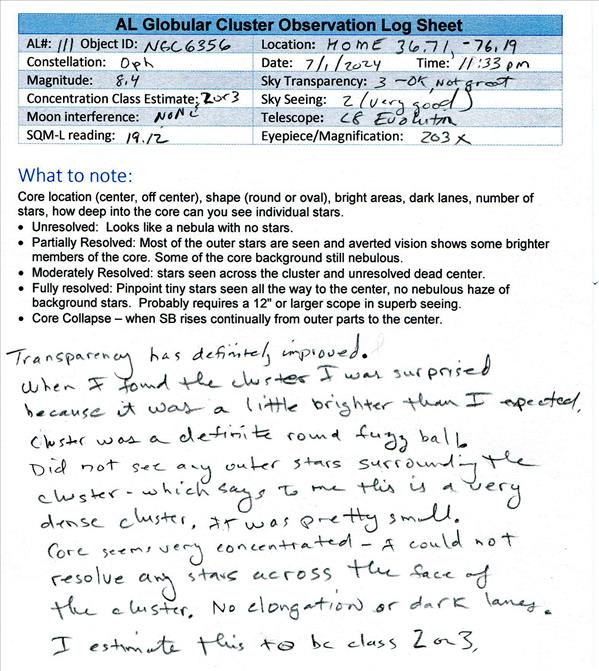 AL Globular Cluster Observation Log Sheet
AL#: 111 Object ID: NGC6356 Location: Home 36.71, -76.19
Constellation: Oph Date: 7/1/2024 Time: 11:33 pm
Magnitude: 8.4 Sky Transparency: 3 - OK, Not great
Concentration Class Estimate: 2 or 3 Sky Seeing: 2 (very good)
Moon interference: NONE Telescope: C8 Evolution
SQM-L reading: 19.12 Eyepiece/Magnification: 203 x
What to note:
Core location (center, off center), shape (round or oval), bright areas, dark lanes, number of
stars, how deep into the core can you see individual stars.
• Unresolved: Looks like a nebula with no stars.
• Partially Resolved: Most of the outer stars are seen and averted vision shows some brighter
members of the core. Some of the core background still nebulous.
• Moderately Resolved: stars seen across the cluster and unresolved dead center.
• Fully resolved: Pinpoint tiny stars seen all the way to the center, no nebulous haze of
background stars. Probably requires a 12" or larger scope in superb seeing.
• Core Collapse – when SB rises continually from outer parts to the center.
Transparency has definitely improved.
When I found the cluster I was surprised
because it was a little brighter than I expected.
Cluster was a definite round fuzz ball.
Did not see any outer stars surrounding the
cluster - which says to me this is a very
dense cluster. It was pretty small.
Core seems very concentrated - I could not
resolve any stars across the face of
the cluster. No elongation or dark lanes.
I estimate this to be class 2 or 3.